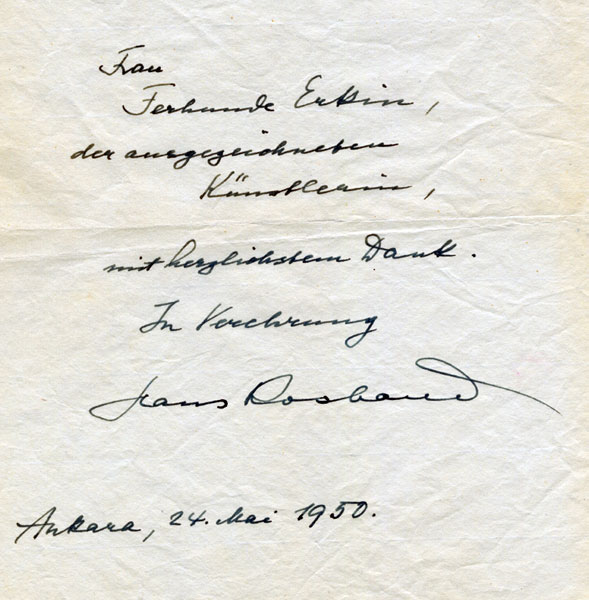 Frau
Ferhunde Erkin,
der ausgezeichneten
Künstlerin,
mit herzlichstem Dank.
In Verehrung
Hans Rosbaud
Ankara, 24. Mai 1950.